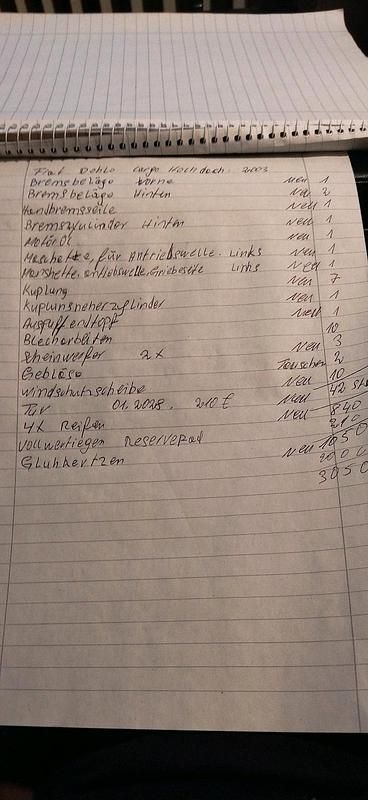 Fiat Doblo Cargo Hochdach. 2003
Bremsbeläge Vorne Neu 1
Bremsbeläge Hinten Neu 2
Handbremsseile Neu 1
Bremszylinder Hinten Neu 1
Motoröl Neu 1
für Antriebswelle. Links Neu 1
Links Neu 1
Kuplung Neu 7
Kuplunsneherzylinder Neu 1
Auspuffendtopf Neu 1
Blecharbeiten 10
Scheinwerfer 2x Neu 3
Gebläse Tauschen 2
Windschutscheibe Neu 10
Tüv 01.2028. 210 € 42 Std
4x Reifen Neu 840
Vollwertiegen Reserverad Neu 210
Gluhkertzen Neu 1050
2000
3050